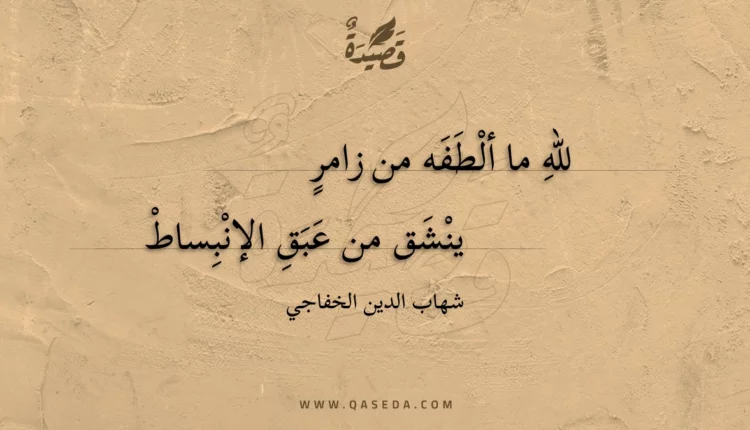 قَصِيدَةٌ
للهِ ما ألْطَفَه من زامرٍ
ينْشَق من عَبَقِ الإنْبِساطْ
شهاب الدين الخفاجي
WWW.QASEDA.COM